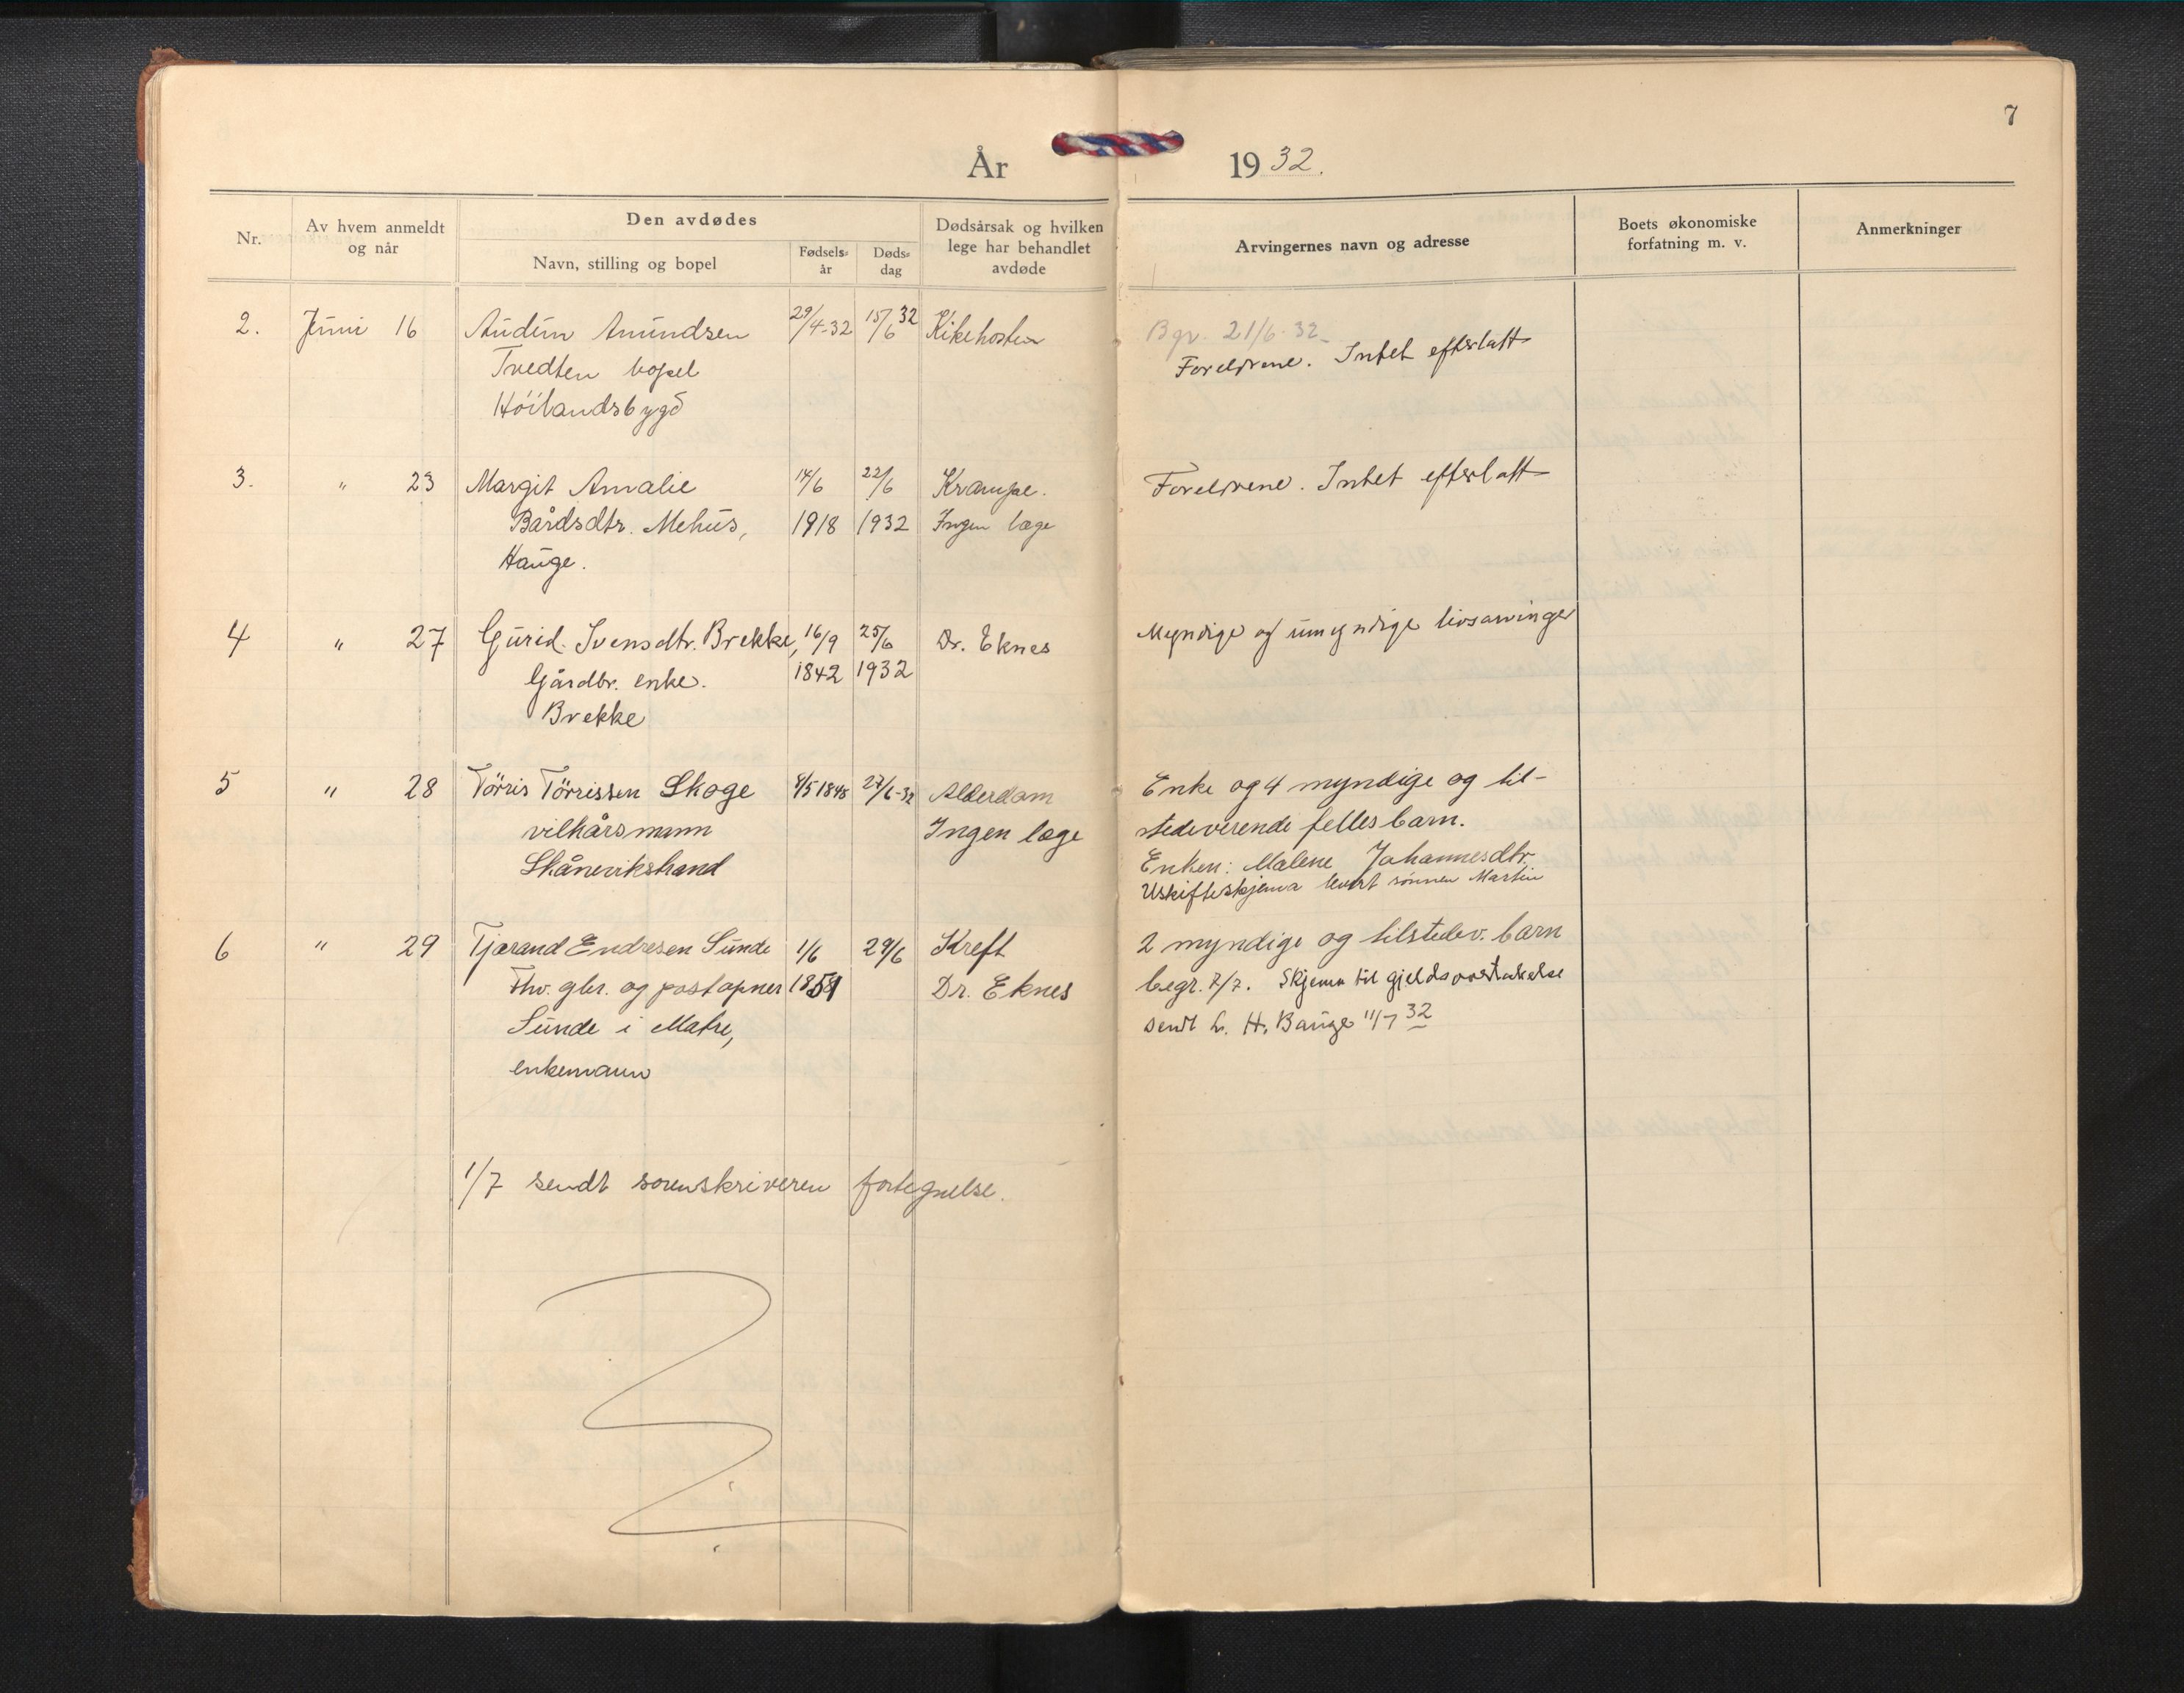 7
År 1932.
Nr.
Av hvem anmeldt og når
Den avdødes
Navn, stilling og bopel
Fødsels-år
Døds-dag
Dødsårsak og hvilken lege har behandlet avdøde
Arvingernes navn og adresse
Boets økonomiske forfatning m. v.
Anmerkninger
2. Juni 16 Audun Amundsen 29/4-32 15/6 32 Kikehosten
Tvedten bopel
Höilandsbygd
Bgr. 21/6-32
Foreldrene. Intet efterlatt
3. " 23 Margit Amalie 14/6 22/6 Krampe.
Bårdsdtr. Mehus, 1918 1932 Ingen læge
Hauge.
Foreldrene. Intet efterlatt
4 " 27 Gurid Svensdtr. Brekke, 16/9 25/6 Dr. Eknes
Gårdbr. enke. 1842 1932
Brekke
Myndige og umyndige livsarvinger
5 " 28 Törris Törrissen Skoge 8/5 1848 27/6-32 Alderdom
vilkårsmann Ingen læge
Skånevikstrand
Enke og 4 myndige og til-
stedeverende felles barn.
Enken: Malene Johannesdtr.
Uskifteskjema levert sönnen Martin
6 " 29 Tjærand Endresen Sunde 1/6 29/6 Kreft
Fhv. gbr. og poståpner 1851 Dr. Eknes
Sunde i Matre,
enkemann
2 myndige og tilstedev. barn
begr. 7/7. Skjema til gjeldsovertakelse
sendt L. H. Bauge 11/7 32
1/7 sendt sorenskriveren fortegnelse.